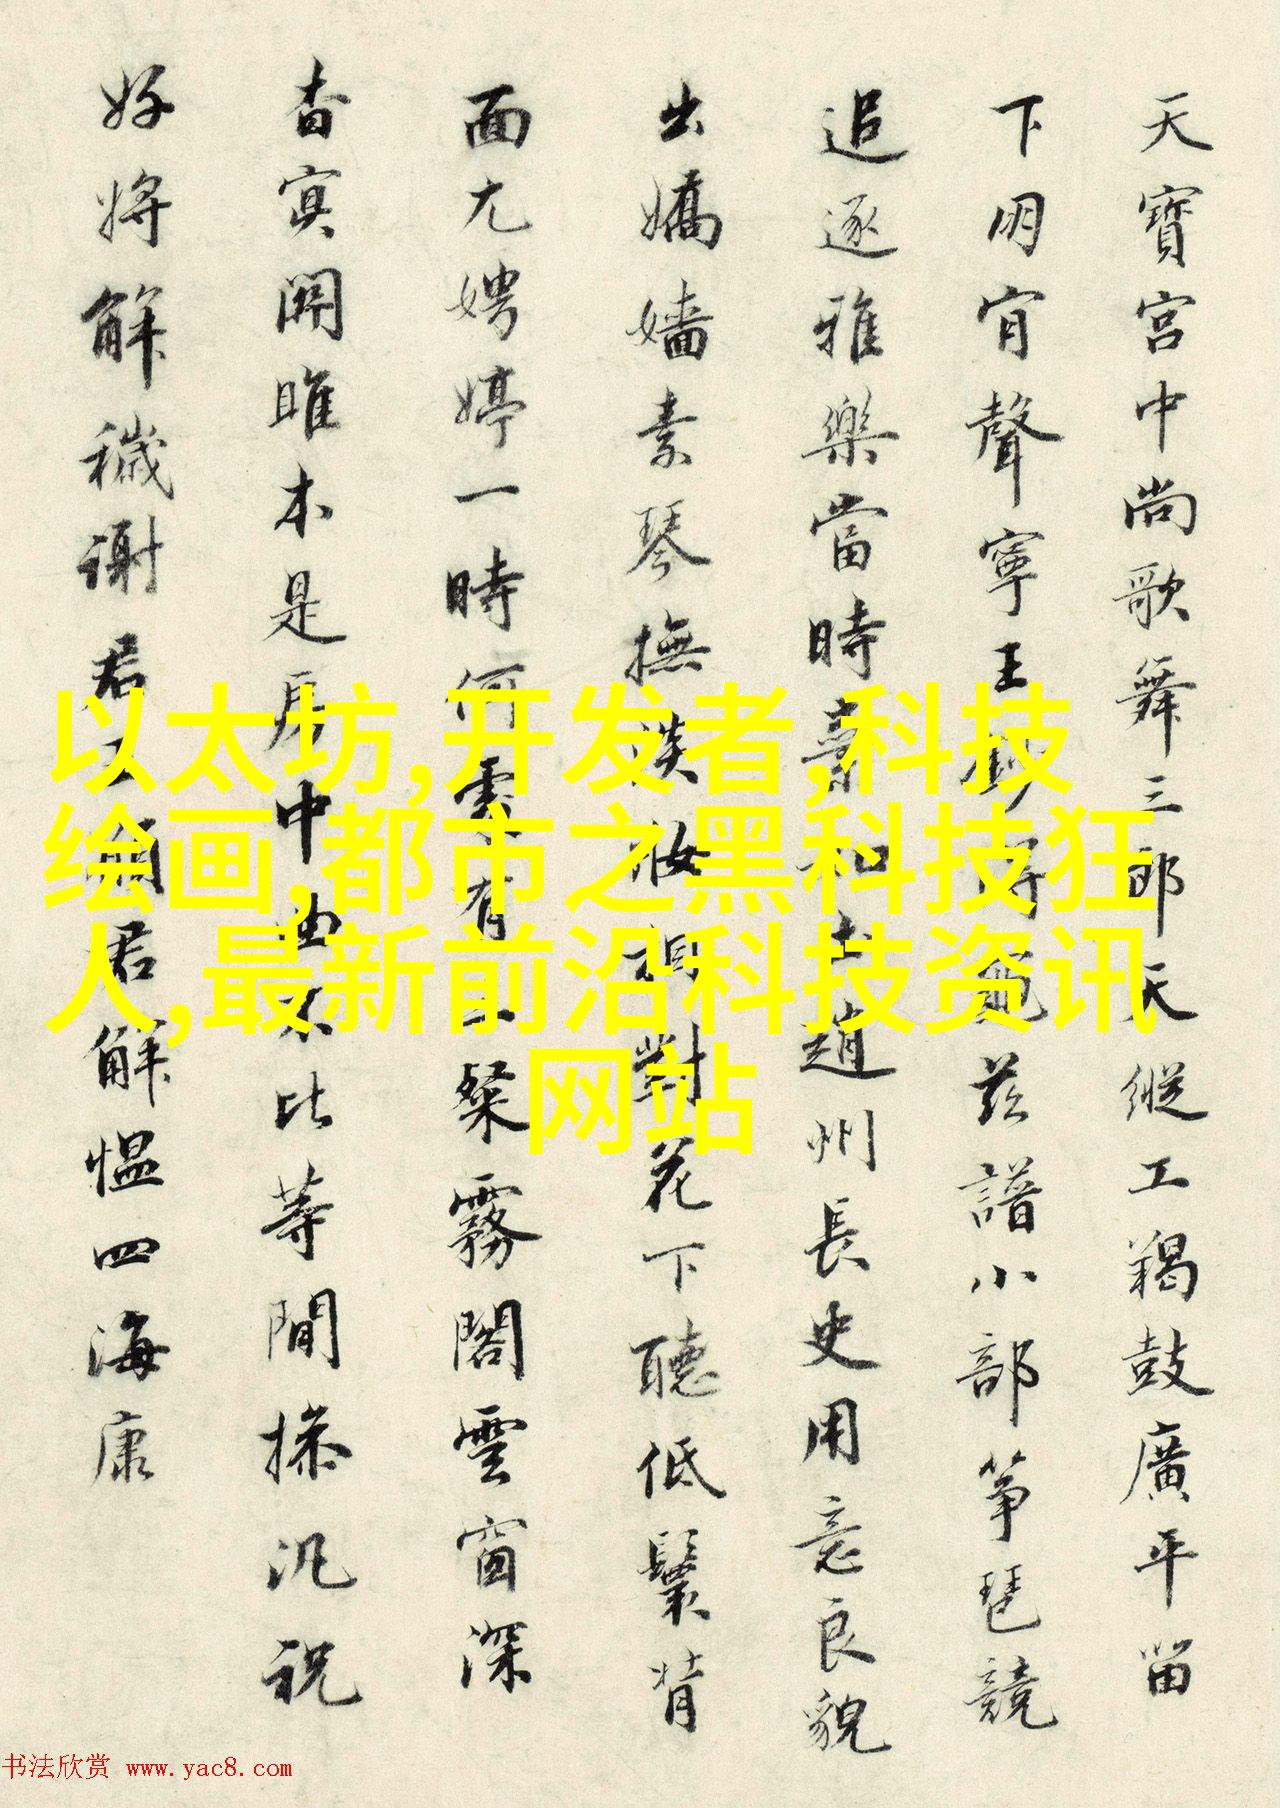 天寶宮中尚歌舞三郎天縱工羯鼓廣平留
下明宵聲寧王得茲譜小部箏琵競
追逐雅樂當時士趙州長史用意良貌
出嬌嬙素琴撫淡妝相對花下聽低鬟背
面尤娉婷一時何處有粲霧閣雲窗深
杳冥關雎本是房中曲不比等閒操汎祝
好將解穢謝君君解慍四海康
以太坊,开发者,科技
绘画,都市之黑科技狂
人,最新前沿科技资讯
网站
书法欣赏 www.yac8.com